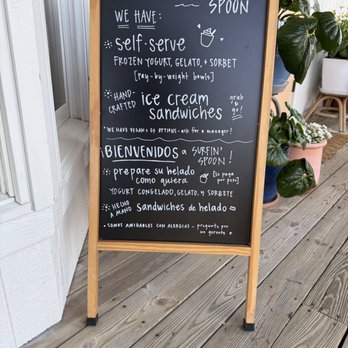 SPOON
WE HAVE:
self-serve
FROZEN YOGURT, GELATO, + SORBET
[pay-by-weight bowls]
HAND-CRAFTED ice cream sandwiches grab & go!
*WE HAVE VEGAN + GF OPTIONS - ask for a manager!
¡BIENVENIDOS a SURFIN' SPOON!
prepare su helado como quiera [se paga por peso]
YOGURT CONGELADO, GELATO, y SORBETE
HECHO A MANO sandwiches de helado
*SOMOS AMIGABLES CON ALERGIAS - pregunta por un gerente